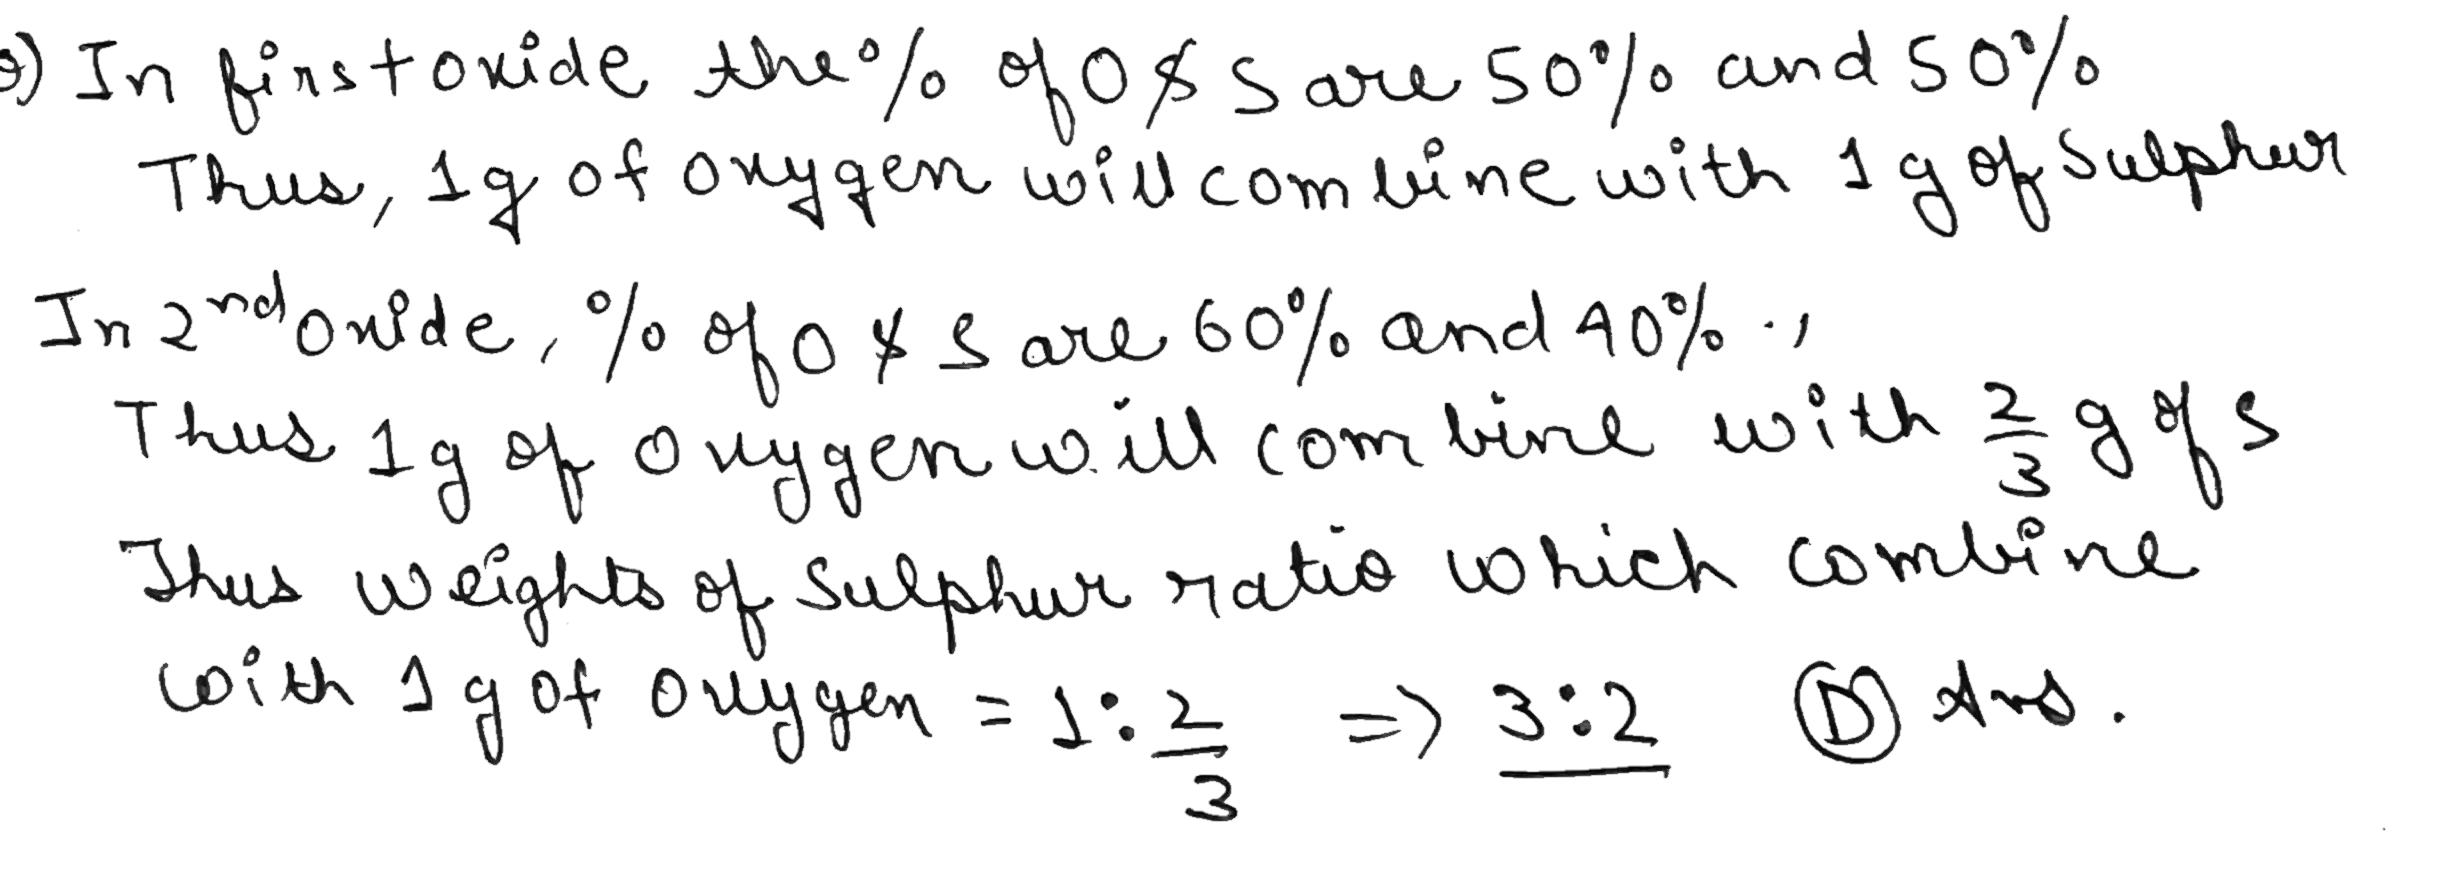 In first oxide the % of O & S are 50% and 50%
Thus, 1g of oxygen will combine with 1 g of Sulphur
In 2nd oxide, % of O & S are 60% and 40% .,
Thus 1g of oxygen will combine with 2/3 g of S
Thus weights of Sulphur ratio which combine
with 1 g of oxygen = 1:2/3 => 3:2 (D) Ans.